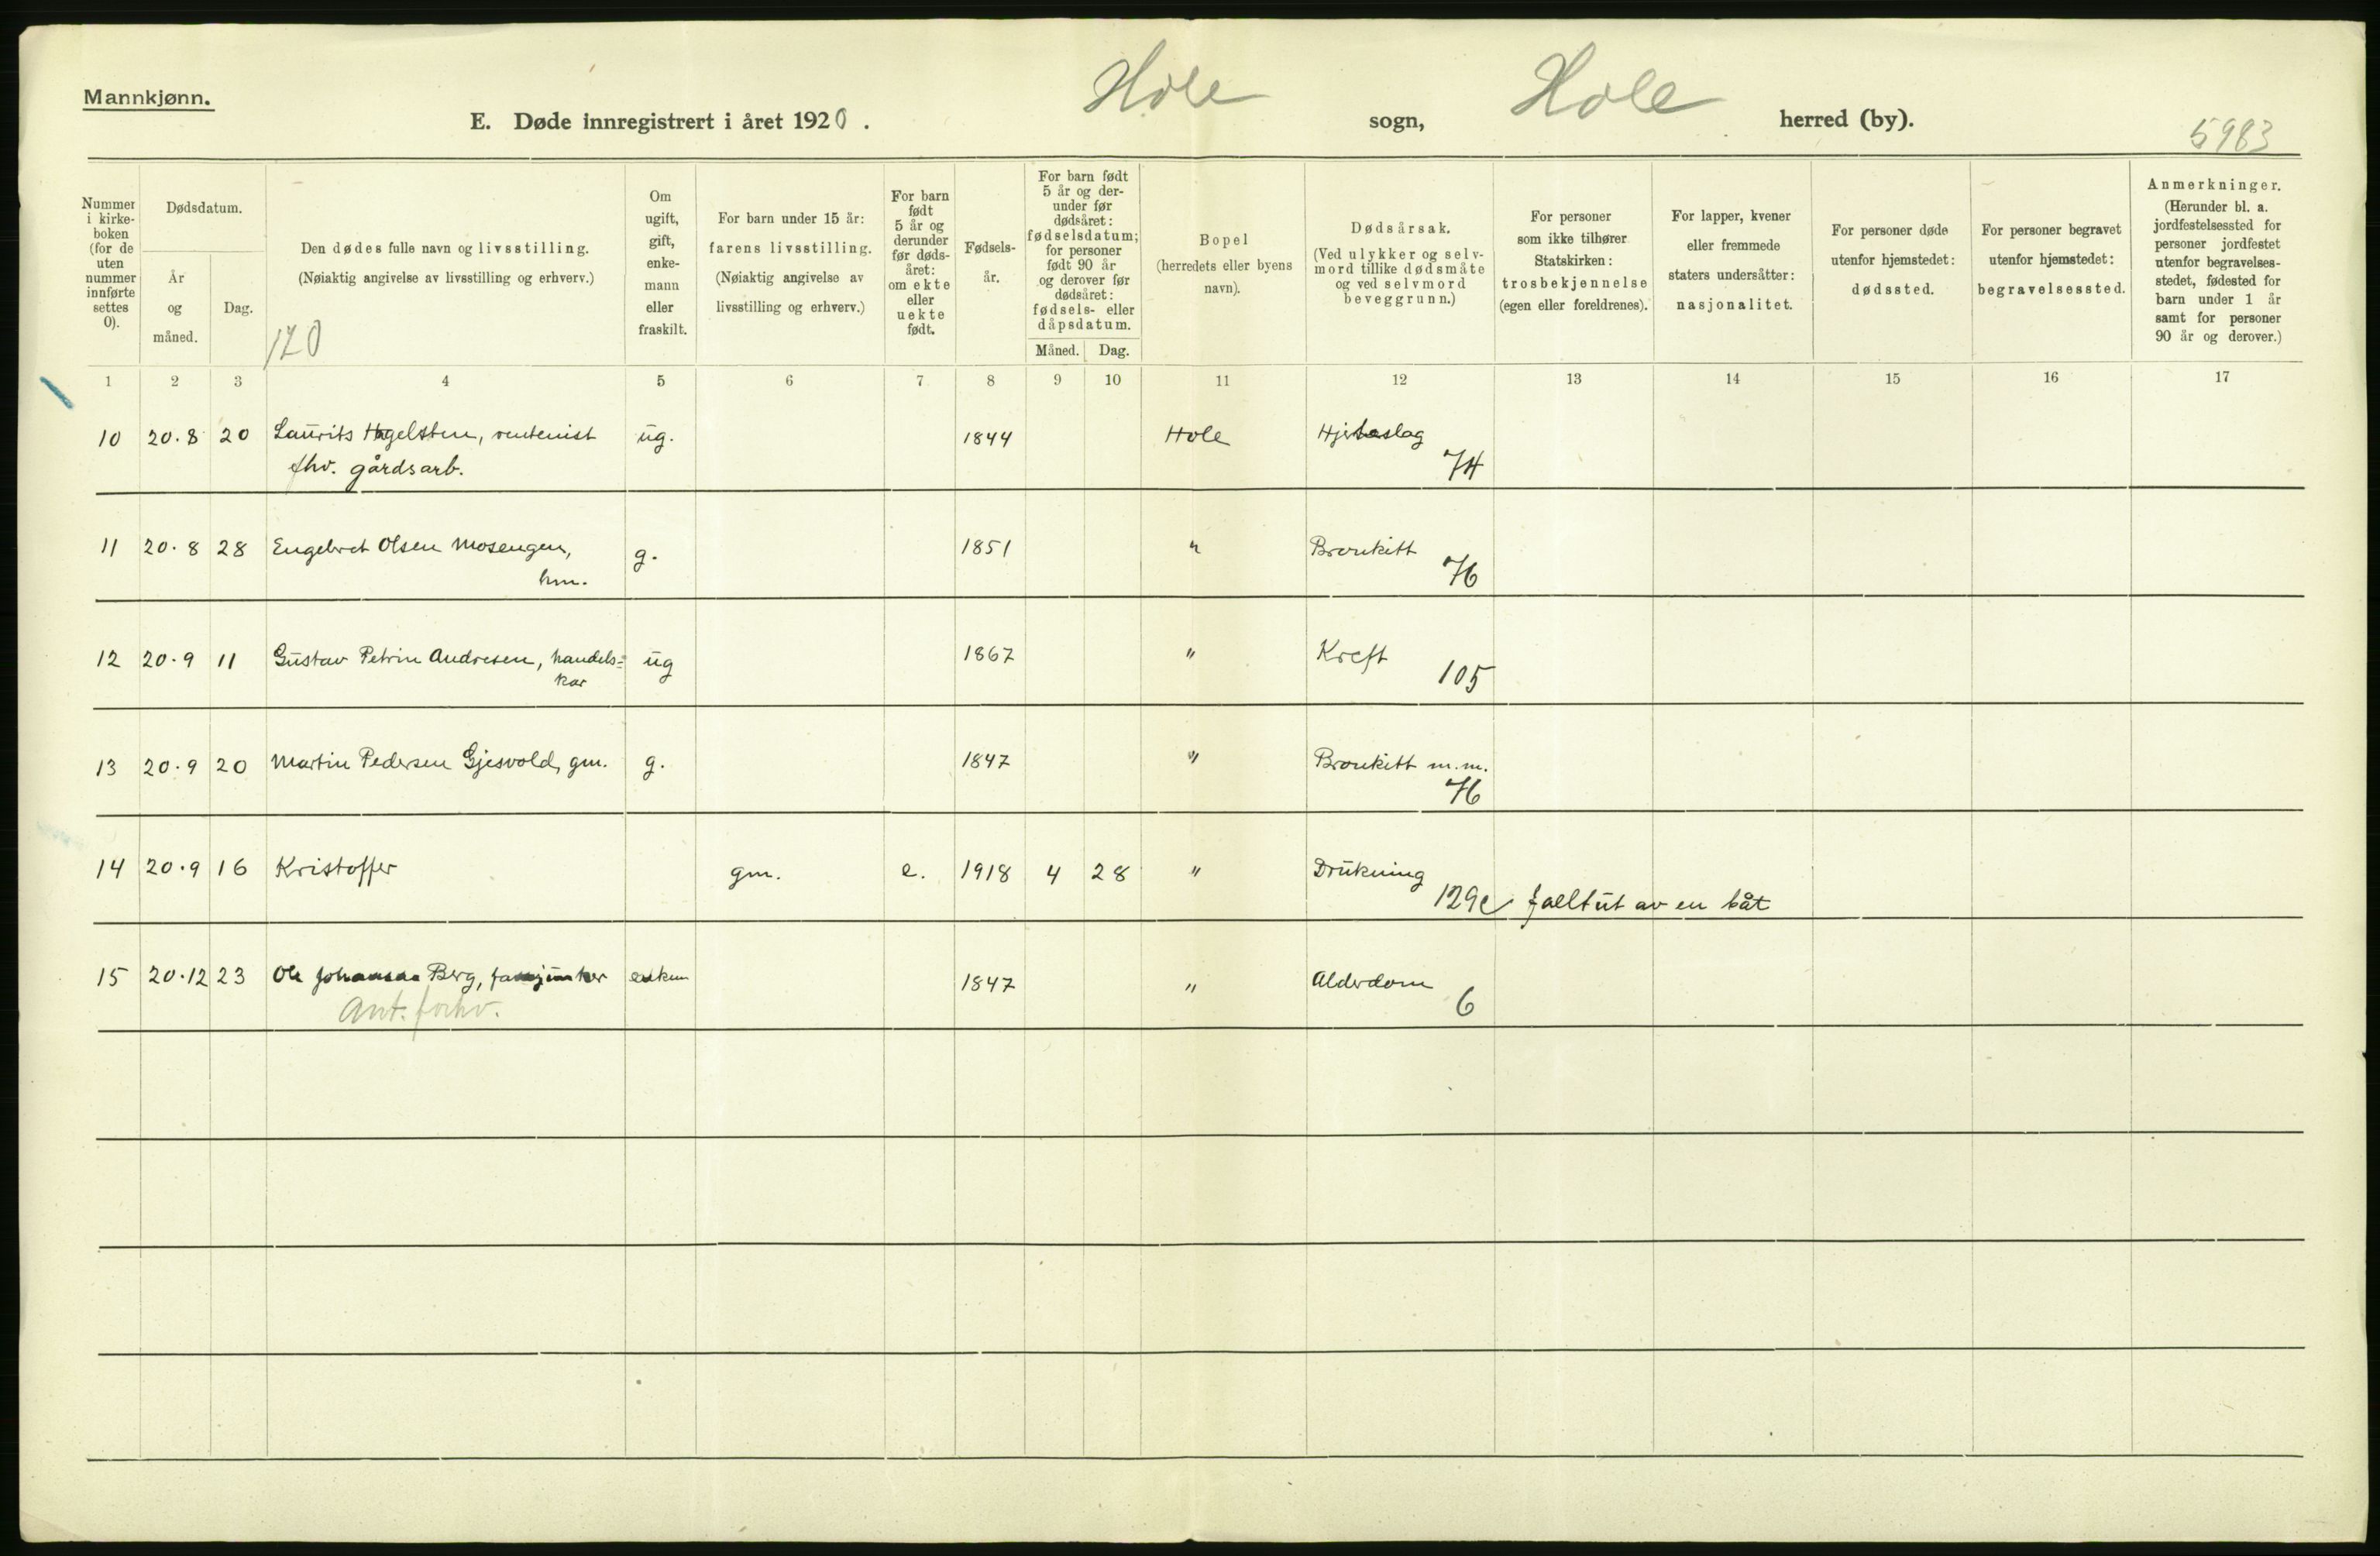 Mannkjønn.
E. Døde innregistrert i året 1920.
Hole sogn, Hole herred (by).
5983
Nummer i kirke-boken (for de uten nummer innførte settes 0).
Dødsdatum.
År og måned.
Dag.
Den dødes fulle navn og livsstilling.
(Nøiaktig angivelse av livsstilling og erhverv.)
120
Om ugift, gift, enke-mann eller fraskilt.
For barn under 15 år:
farens livsstilling.
(Nøiaktig angivelse av livsstilling og erhverv.)
For barn født 5 år og derunder før døds-året: om ekte eller uekte født.
Fødsels-år.
For barn født 5 år og der-under før dødsåret: fødselsdatum; for personer født 90 år og derover før dødsåret: fødsels- eller dåpsdatum.
Måned. Dag.
Bopel
(herredets eller byens navn).
Dødsårsak.
(Ved ulykker og selv-mord tillike dødsmåte og ved selvmord beveggrunn.)
For personer som ikke tilhører Statskirken: trosbekjennelse (egen eller foreldrenes).
For lapper, kvener eller fremmede staters undersåtter: nasjonalitet.
For personer døde utenfor hjemstedet: dødssted.
For personer begravet utenfor hjemstedet: begravelsessted.
Anmerkninger.
(Herunder bl. a. jordfestelsessted for personer jordfestet utenfor begravelses-stedet, fødested for barn under 1 år samt for personer 90 år og derover.)
1 2 3 4 5 6 7 8 9 10 11 12 13 14 15 16 17
10 20.8 20 Laurits Hagelsten, rentenist ug. 1844 Hole Hjerteslag
fhv. gårdsarb. 74
11 20.8 28 Engebret Olsen Mosengen, g. 1851 " Bronkitt
hm. 76
12 20.9 11 Gustav Petrin Andresen, handels= ug 1867 " Kreft
kar 105
13 20.9 20 Martin Pedersen Gjesvold, gm. g. 1847 " Bronkitt m.m.
76
14 20.9 16 Kristoffer gm. e. 1918 4 28 " Drukning
129c falt ut av en båt
15 20.12 23 Ole Johansen Berg, fanejunker enkem 1847 " Alderdom
Ant. forhv. 6